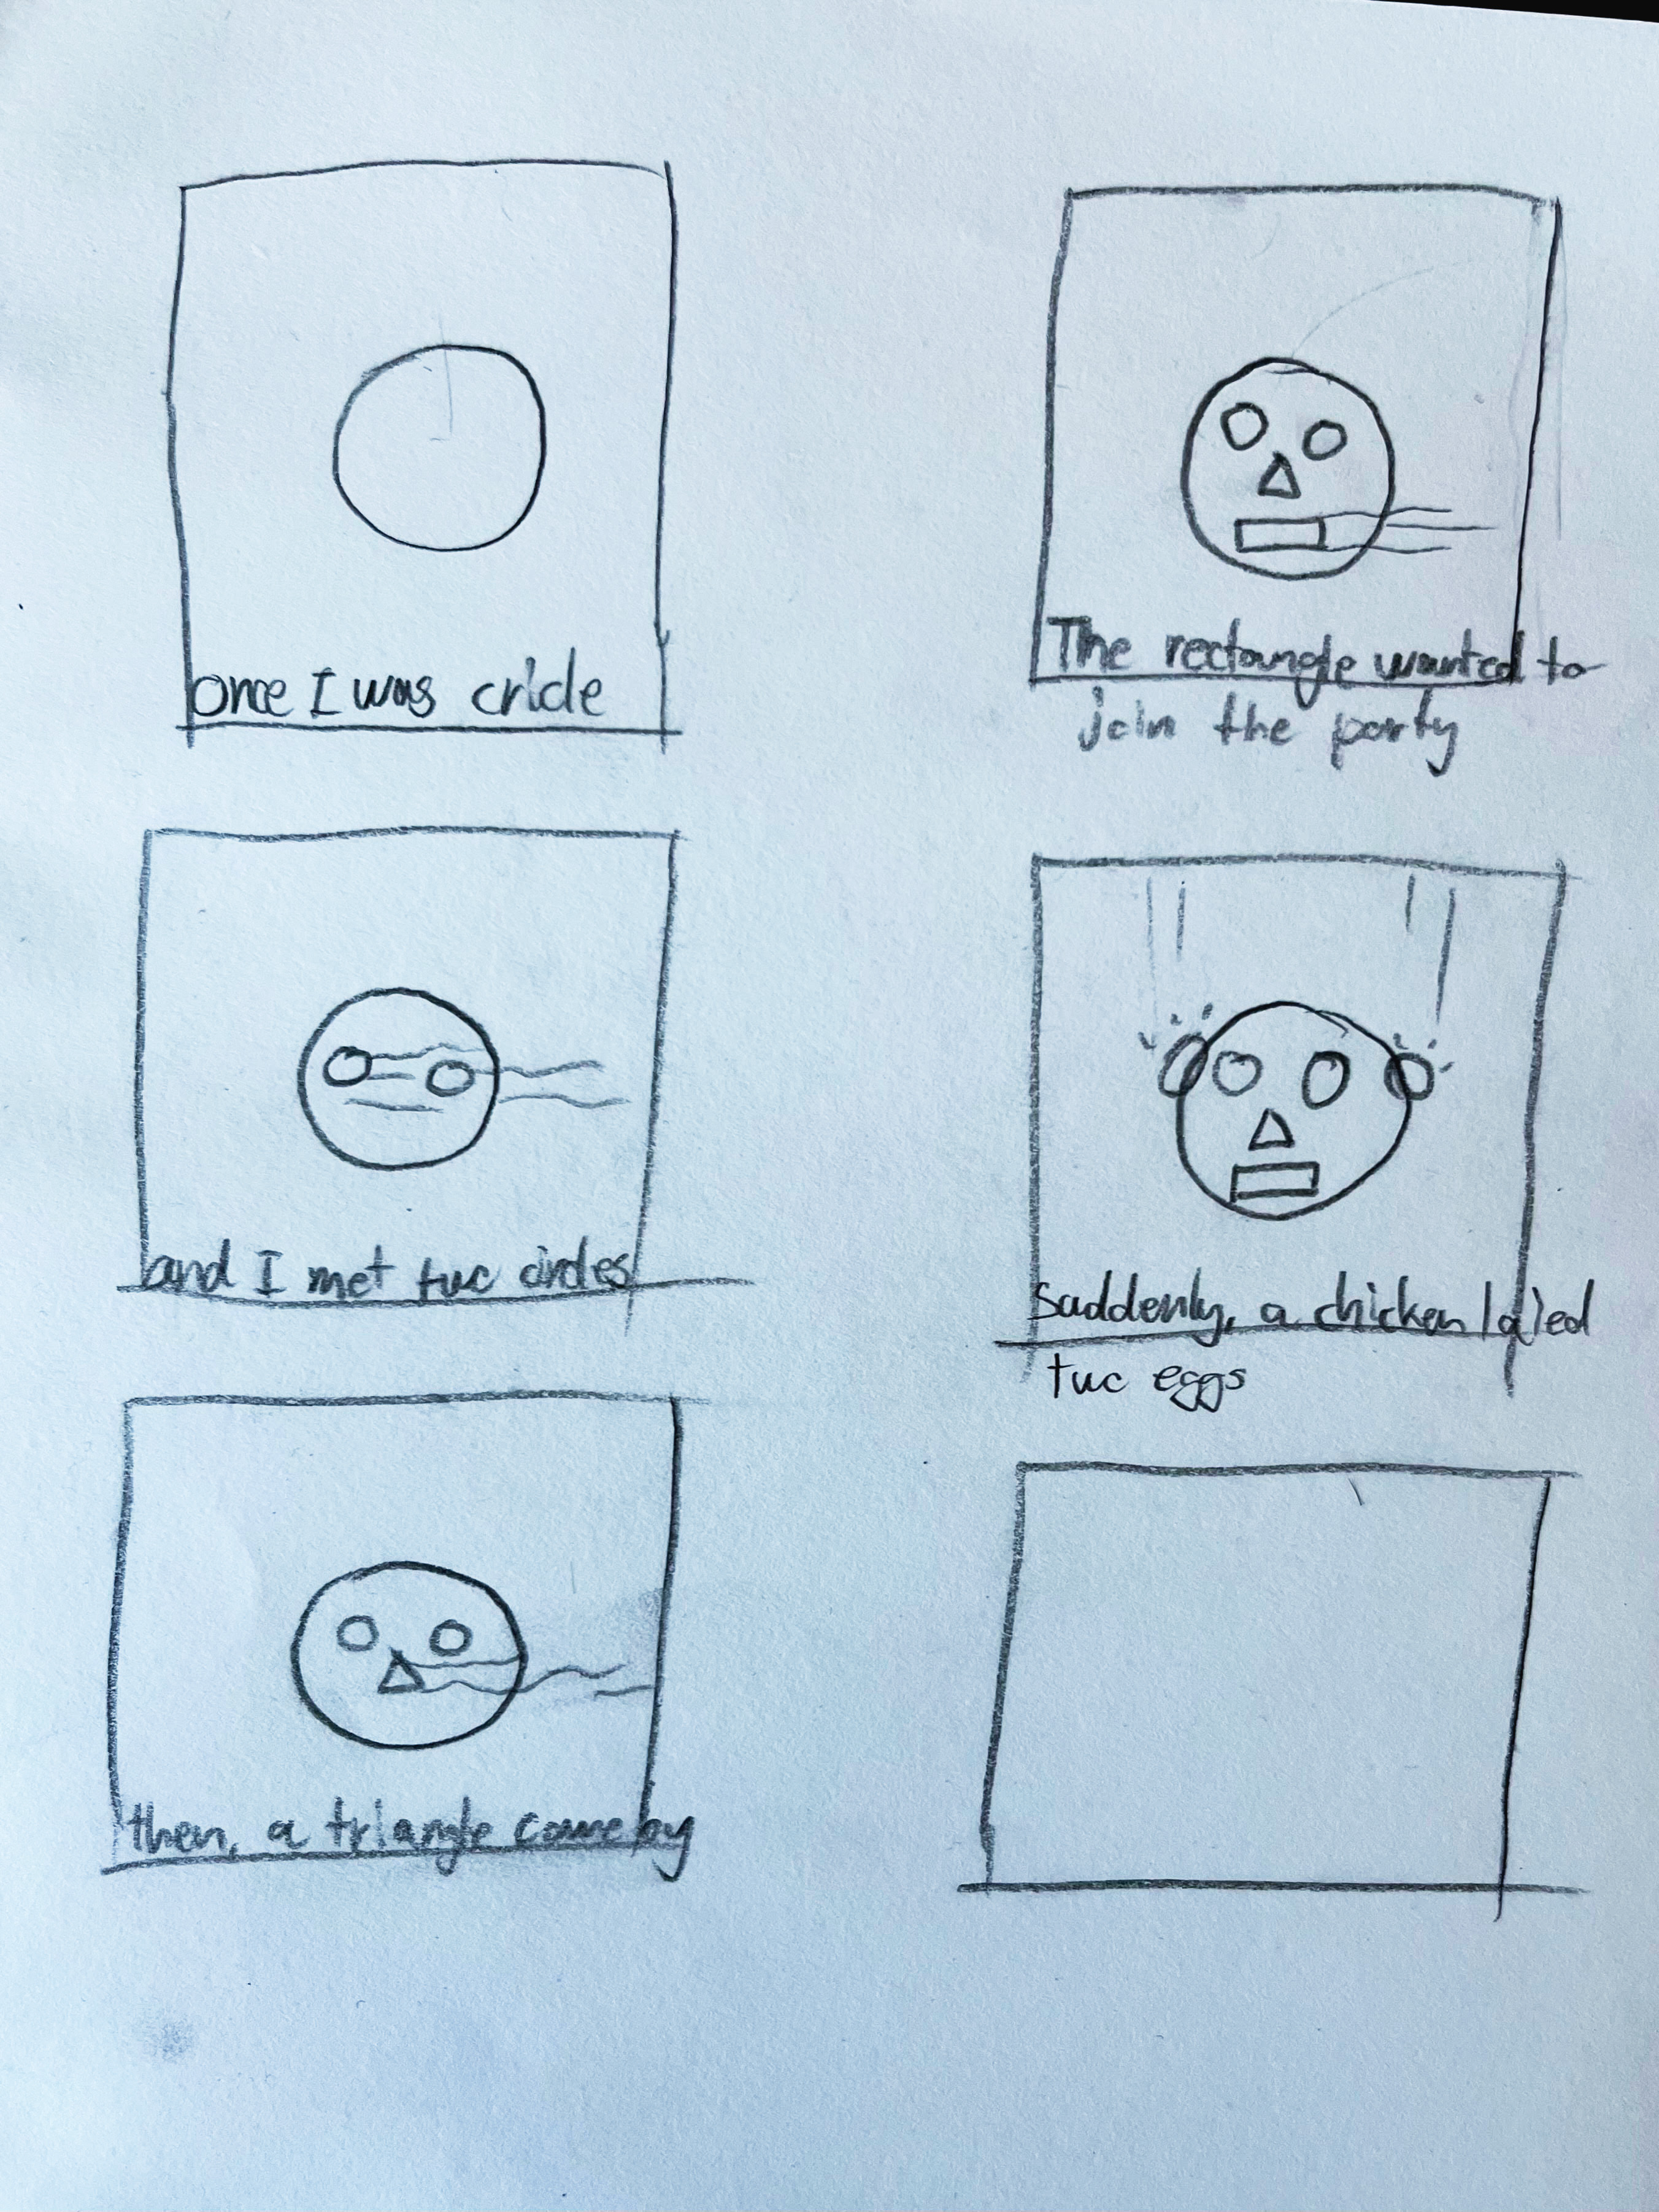 once I was cricle
and I met tuc circles
then, a triangle came by
The rectangle wanted to
join the party
Suddenly, a chicken laied
tuc eggs